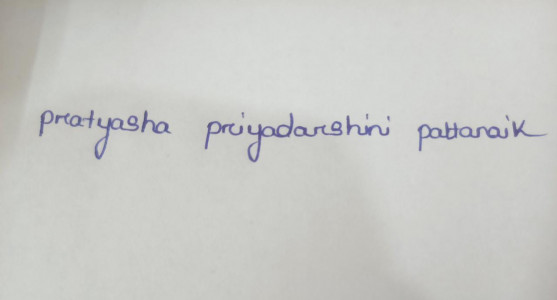 pratyasha priyadarshini pattanaik